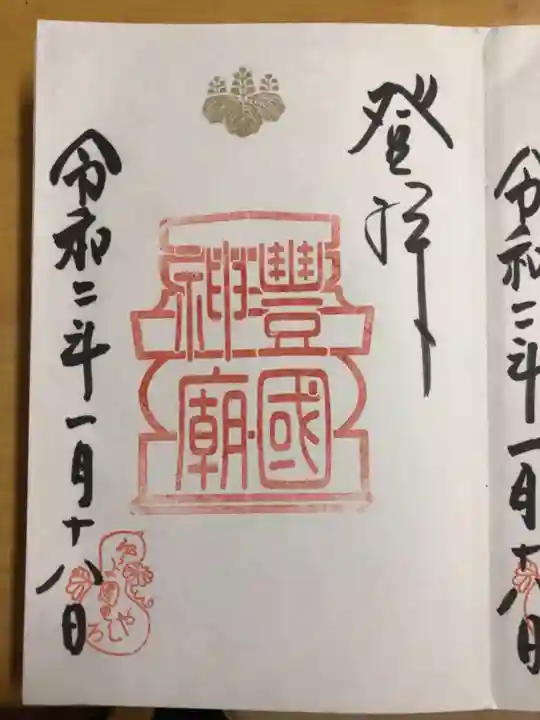 登拝
豊國
神廟
令和二年一月十八日
令和二年一月十八日